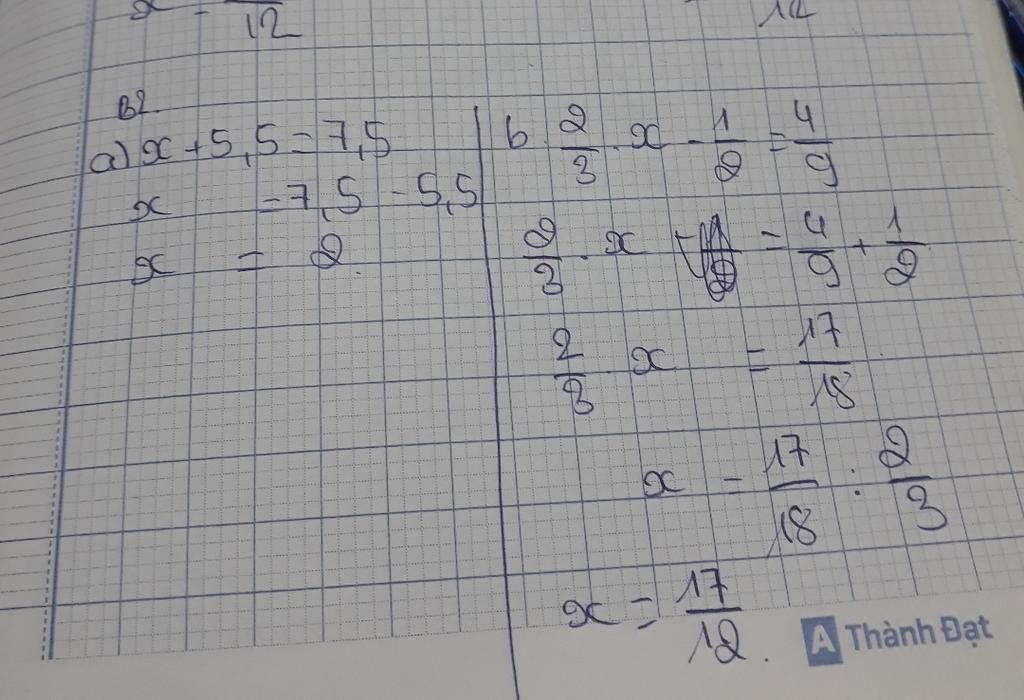 x = 12
12
B2
a) x + 5,5 = 7,5
x = 7,5 - 5,5
x = 2
b 2/3 . x - 1/2 = 4/9
2/3 . x = 4/9 + 1/2
2/3 x = 17/18
x = 17/18 : 2/3
x = 17/12.
A Thành Đạt